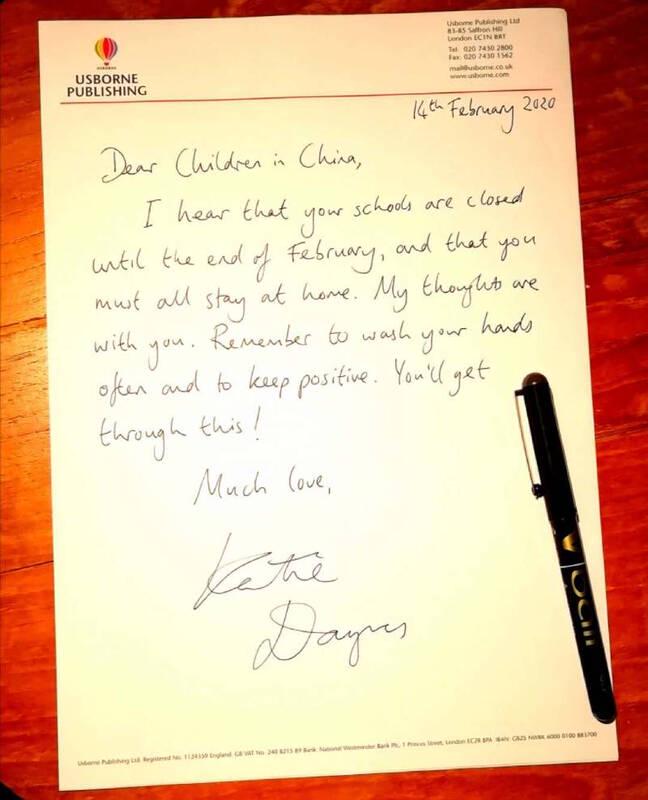 USBORNE
USBORNE
PUBLISHING
Usborne Publishing Ltd
83-85 Saffron Hill
London EC1N 8RT
Tel: 020 7430 2800
Fax: 020 7430 1562
mail@usborne.co.uk
www.usborne.com
14th February 2020
Dear Children in China,
I hear that your schools are closed
until the end of February, and that you
must all stay at home. My thoughts are
with you. Remember to wash your hands
often and to keep positive. You'll get
through this!
Much love,
Katie
Daynes
Usborne Publishing Ltd. Registered No. 1124359 England. GB VAT No. 240 8215 89 Bank. National Westminster Bank Plc, 1 Princes Street, London EC2R 8PA IBAN: GB25 NWBK 6000 0100 883700